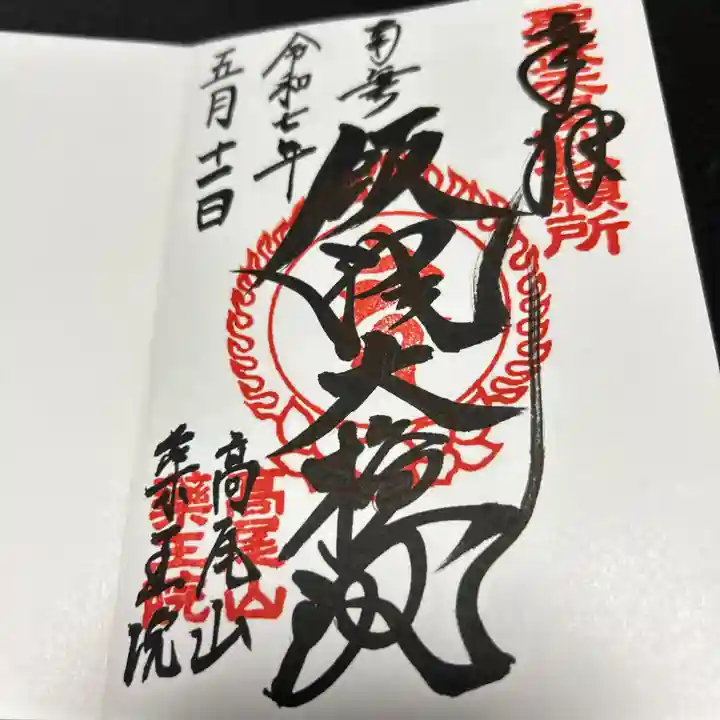 奉拝
南無
飯縄大権現
令和七年
五月十一日
高尾山
薬王院
高尾山
薬王院